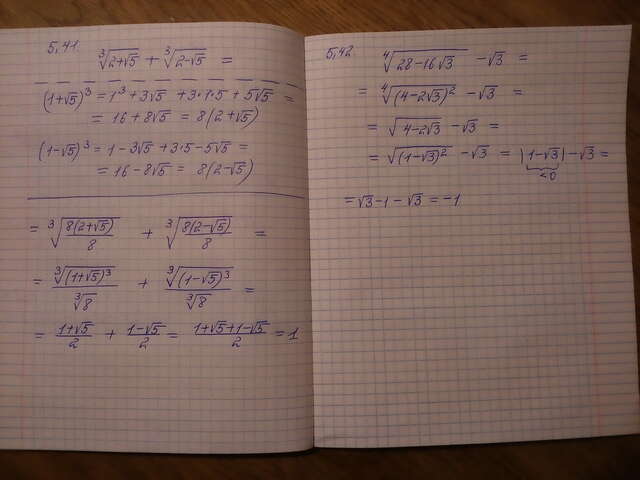 5,41.
∛(2+√5) + ∛(2-√5) =
(1+√5)³ = 1³ + 3√5 + 3·1·5 + 5√5 =
= 16 + 8√5 = 8(2+√5)
(1-√5)³ = 1 - 3√5 + 3·5 - 5√5 =
= 16 - 8√5 = 8(2-√5)
= ∛(8(2+√5)/8) + ∛(8(2-√5)/8) =
= ∛(1+√5)³/∛8 + ∛(1-√5)³/∛8 =
= (1+√5)/2 + (1-√5)/2 = (1+√5+1-√5)/2 = 1
5,42.
∜(28-16√3) - √3 =
= ∜((4-2√3)²) - √3 =
= √(4-2√3) - √3 =
= √((1-√3)²) - √3 = |1-√3| - √3 =
<0
= √3 - 1 - √3 = -1